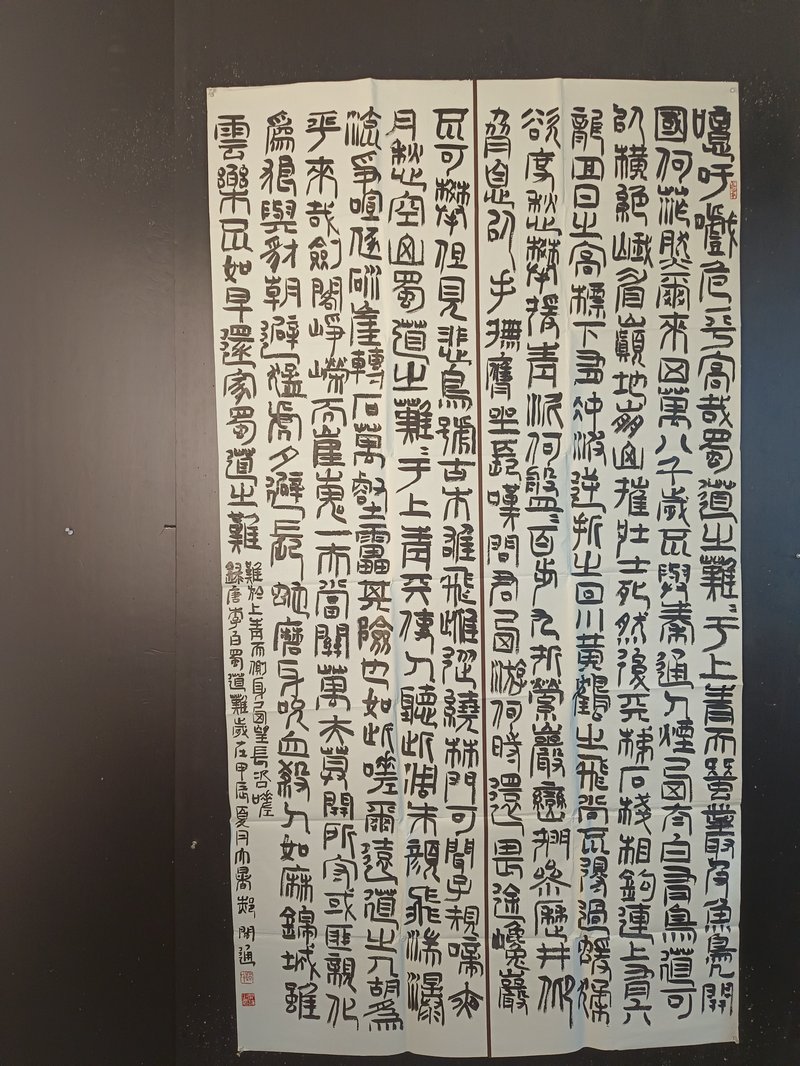 噫吁嚱危乎高哉蜀道之難〻于上青天蠶叢及魚鳧開
國何茫然爾來四萬八千歲不與秦通人煙西太白有鳥道可
以橫絕峨眉巔地崩山摧壯士死然後天梯石棧相鉤連上有六
龍回日之高標下有沖波逆折之回川黃鶴之飛尚不得過猿猱
欲度愁攀援青泥何盤〻百步九折縈巖巒捫參歷井仰
脅息以手撫膺坐長嘆問君西遊何時還畏途巉巖
不可攀但見悲鳥號古木雄飛雌從繞林間聞子規啼夜
月愁空山蜀道之難〻于上青天使人聽此凋朱顏飛湍瀑
流爭喧豗砯崖轉石萬壑雷其險也如此嗟爾遠道之人胡為
乎來哉劍閣崢嶸而崔嵬一夫當關萬夫莫開所守或匪親化
為狼與豺朝避猛虎夕避長蛇磨牙吮血殺人如麻錦城雖
雲樂不如早還家蜀道之難
難於上青天側身西望長咨嗟
錄唐李白蜀道難歲在甲辰夏月大暑 開通